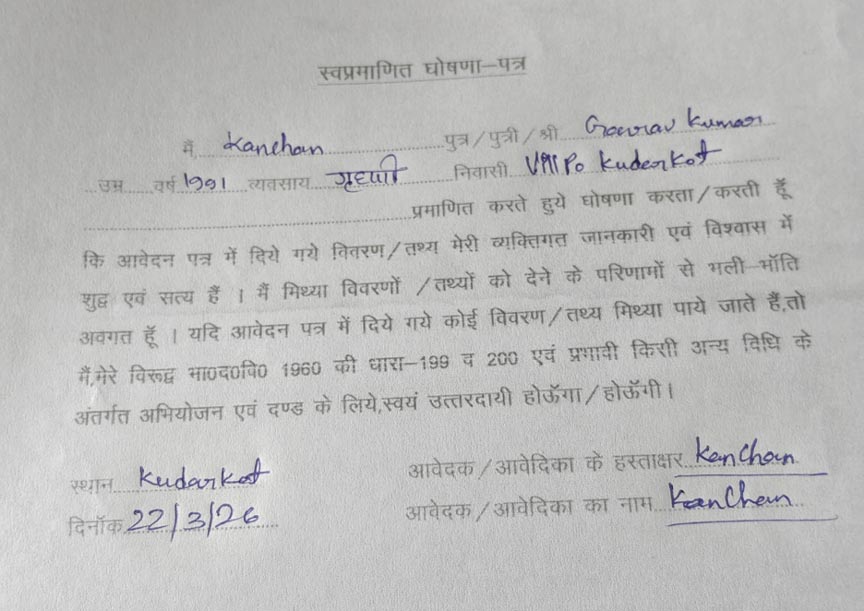 स्वप्रमाणित घोषणा–पत्र
मैं, Kanchan पुत्र/पुत्री/श्री Gourav Kumar
उम्र वर्ष 1991 व्यवसाय गृहणी निवासी Vill Po Kudarkot
प्रमाणित करते हुये घोषणा करता/करती हूँ
कि आवेदन पत्र में दिये गये विवरण/तथ्य मेरी व्यक्तिगत जानकारी एवं विश्वास में
शुद्व एवं सत्य हैं । मैं मिथ्या विवरणों /तथ्यों को देने के परिणामों से भली–भॉति
अवगत हूँ । यदि आवेदन पत्र में दिये गये कोई विवरण/तथ्य मिथ्या पाये जाते हैं,तो
मैं,मेरे विरूद्व भा0द0वि0 1960 की धारा–199 व 200 एवं प्रभावी किसी अन्य विधि के
अंतर्गत अभियोजन एवं दण्ड के लिये,स्वयं उत्तरदायी होऊँगा/होऊँगी।
स्थान Kudarkot आवेदक/आवेदिका के हस्ताक्षर Kanchan
दिनॉक 22/3/26 आवेदक/आवेदिका का नाम Kanchan